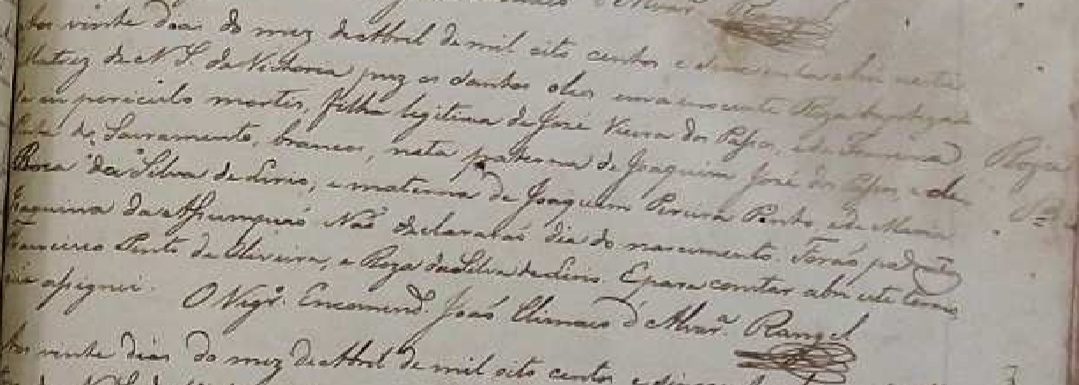 Rangel
Aos vinte dias do mez de Abril de mil oito centos e
Matriz de N. S. da Victoria puz os santos oleos innocente Roza baptizada
in periculo mortis, filha legitima de José Vieira dos Passos, e de
do Sacramento, brancos, neta paterna de Joaquim José dos Passos, e de
Roza da Silva de Lirio, e materna de Joaquim Pereira Pinto, e de Maria
Joaquina da Assumpção. Não declararão dia do nascimento. Forão padrinhos
Francisco Pinto de Oliveira, e Roza da Silva de Lirio. E para constar abri este termo
assignei.
O Vigr.º Encomend.º João Climaco d'Alvar.ª Rangel
Roza
Aos vinte dias do mez de Abril de mil oito centos e